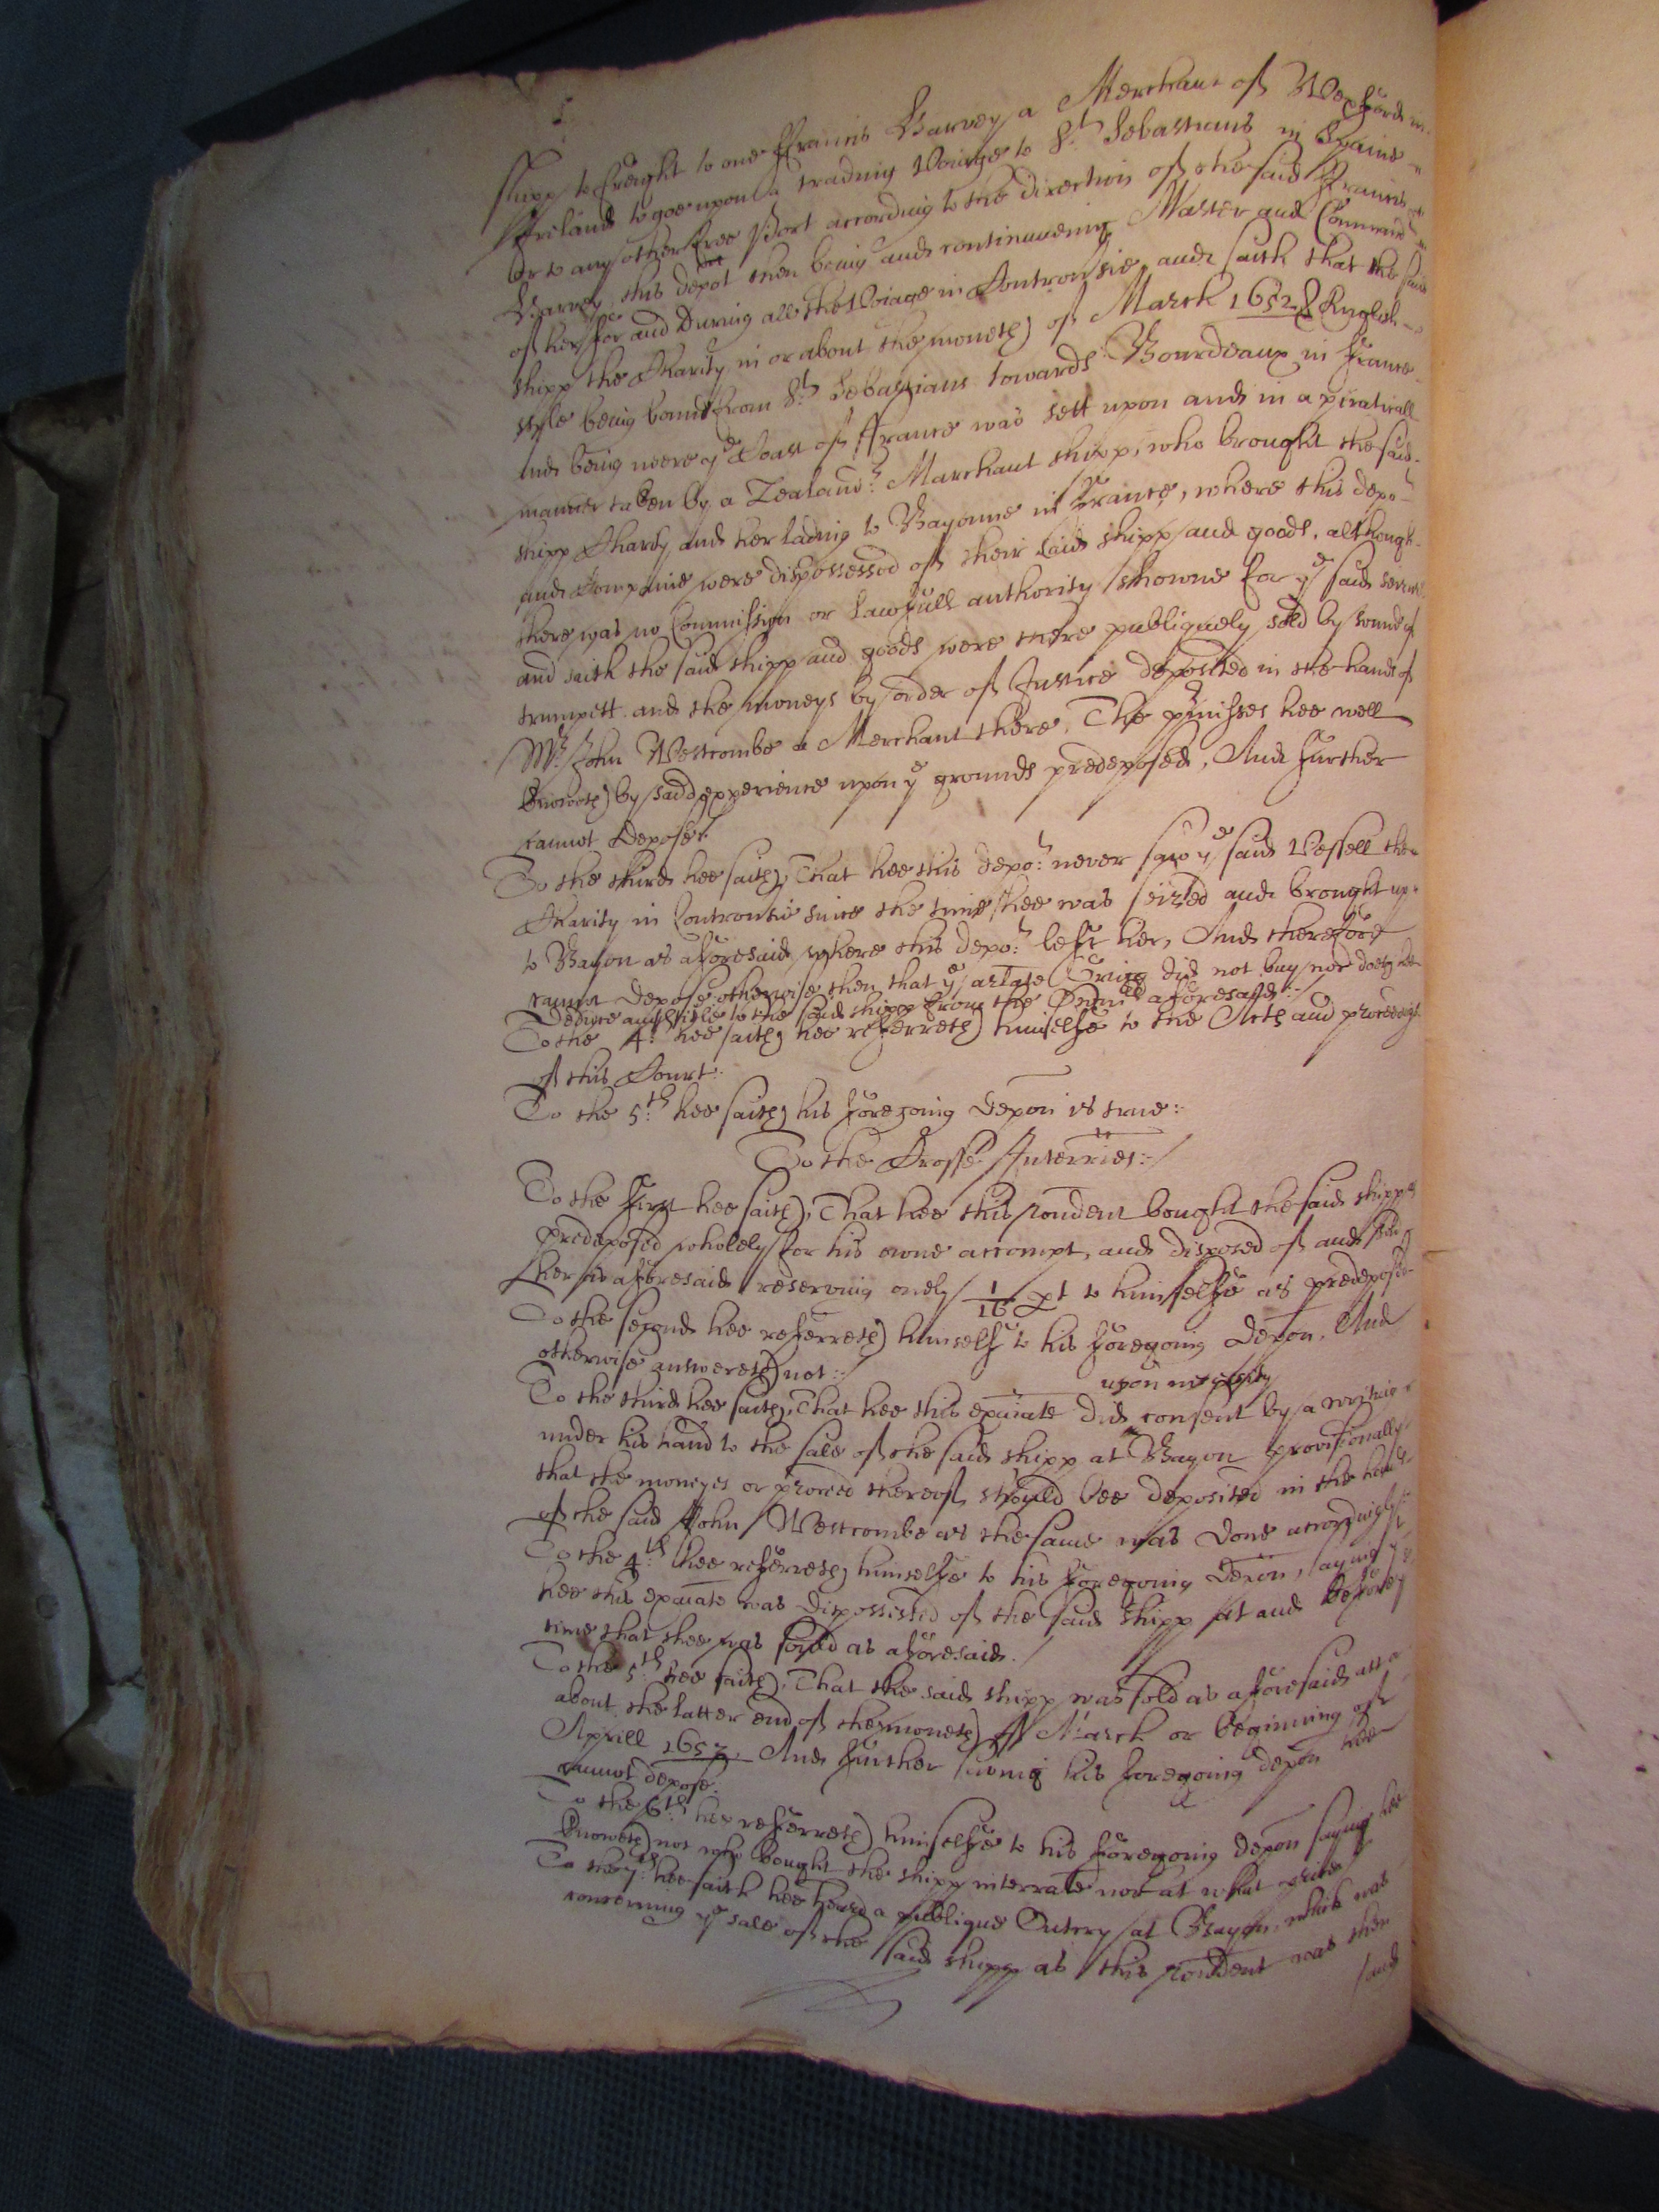 shipp to freight to one Francis Harvey a Merchant of Wexford in
Ireland to goe upon a trading Voiage to St. Sebastians in Spaine
or to any other free Port according to the direction of the said Francis
Harvey, this depot then being and continueing Master and Command
of her for and during all the Voiage in Controvsie, and saith that the said
shipp the Charity in or about the moneth of March 1652 English
style being bound from St. Sebastians towards Bourdeaux in france
and being neere ye Coast of France was sett upon and in a piraticall
manner taken by a Zealandr. Marchant shipp, who brought the said
shipp Charity and her lading to Bayonne in France, where this depo
and Companie were dispossessed of their said shipp and goods, although
there was no Commission or lawfull authority showne for ye said seizure
and saith the said shipp and goods were there publiquely sold by sound of
trumpett and the moneys by order of Justice deposited in the hands of
Mr. John Westcombe a Merchant there, The prmisses hee well
knoweth by sadd experience upon ye grounds predeposed, And further
cannot depose:
To the third hee saith, That hee this depot. never saw ye said Vessell the
Charity in Controvsie since the time shee was seized and brought up
to Bayon as aforesaid where this depot. left her, And therefore
cannot depose otherwise then that ye arlate did not buy nor doeth
derive any title to the said shipp from the aforesaid:
To the 4th. hee saith hee referreth himselfe to the Acts and proceedings
of this Court:
To the 5th. hee saith his foregoing depon is true:
To the Crosse Interries:
To the first hee saith, That hee this rondent bought the said shipp
predeposed wholely for his owne accompt, and disposed of and sold
her as aforesaid reserving onely 1/16 pt to himselfe as predeposed
To the second hee referreth himselfe to his foregoing depon, And
otherwise answereth not:
upon necessity
To the third hee saith, That hee this exaiate did consent by a writing
under his hand to the sale of the said shipp at Bayon provisionally
that the moneyes or proceed thereof should bee deposited in the hands
of the said John Westcombe as the same was done accordingly:
To the 4th. hee referreth himselfe to his foregoing depon, saying yt
hee this exaiate was dispossessed of the said shipp at and before ye
time that shee was sould as aforesaid.
To the 5th. hee saith, That the said shipp was sold as aforesaid att or
about the latter end of the moneth of March or beginning of
Aprill 1653. And further saving his foregoing depon hee
cannot depose.
To the 6th. hee referreth himselfe to his foregoing depon saying hee
knoweth not who bought the shipp interrate nor at what price
To the 7th. hee saith hee heard a publique Outcry at Bayon, which was
concerning ye sale of the said shipp as this rondent was then